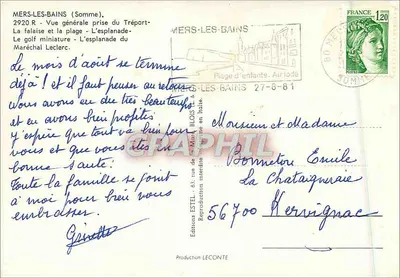 MERS-LES-BAINS (Somme),
2920 R - Vue générale prise du Tréport-
La falaise et la plage - L'esplanade-
Le golf miniature - L'esplanade du
Maréchal Leclerc.
Le mois d'août se termine
déjà! et il faut penser au retour
nous avons eu du très beau temps
et en avons bien profités
J'espère que tout va bien pour
vous et que vous êtes en
bonne santé.
Toute la famille se joint
à moi pour bien vous
embrasser.
Ginette
Editions ESTEL - 61, rue de
BLOIS
Reproduction interdite
Production LECONTE
MERS-LES-BAINS
Plage d'enfants. Air iodé
MERS-LES-BAINS 27-8-81
SOMME
FRANCE
1,20
Monsieur et Madame
Bonneton Emile
La Chataigneraie
56700 Kervignac
CPAPHIL